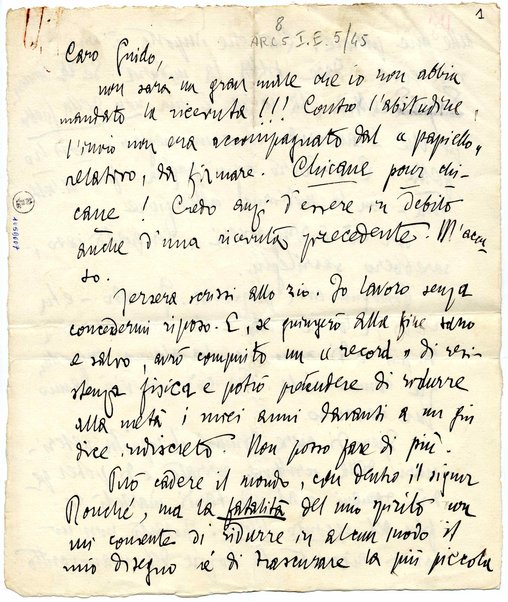 1
8
ARC 5 I.E. 5/45
Caro Guido,
non sarà un gran male che io non abbia
mandato la ricevuta!!! Contro l'abitudine,
l'invio non era accompagnato dal « papiello »
relativo, da firmare. Chicane pour chi-
cane! Credo anzi d'essere in debito
anche d'una ricevuta precedente. M'accu-
so.
Iersera scrissi allo zio. Io lavoro senza
concedermi riposo. E, se giungerò alla fine sano
e salvo, avrò compiuto un « record » di resi-
stenza fisica e potrò pretendere di ridurre
alla metà i miei anni davanti a un giu
dice indiscreto. Non posso fare di più.
Può cadere il mondo, con dentro il signor
Ronché, ma la fatalità del mio spirito non
mi consente di ridurre in alcun modo il
mio disegno né di trascurare la più piccola